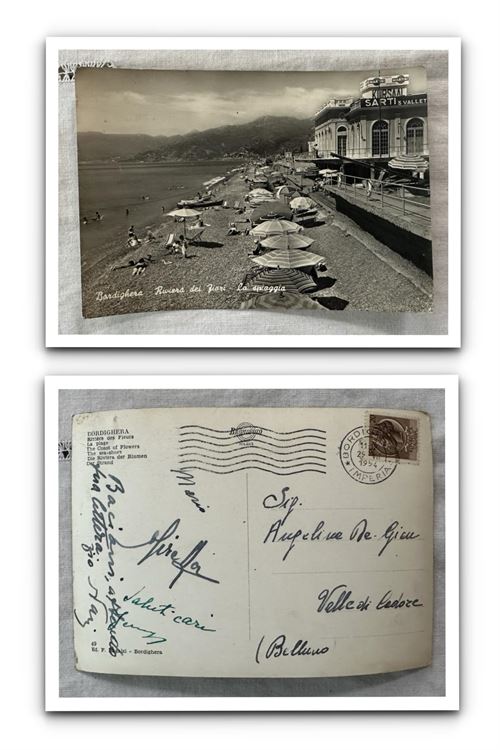 KURSAAL
SARTI & VALLET
Bordighera - Riviera dei Fiori - La spiaggia
BORDIGHERA
Riviera des Fleurs
La plage
The Coast of Flowers
The sea-shore
Die Riviera der Blumen
Der Strand
BORDIGHERA
1954
IMPERIA
Mario
Mirella
Baci
una lettera
Saluti cari
Sig.
Angelina De Gian
Valle di Cadore
(Belluno
49
Ed. F. - Bordighera